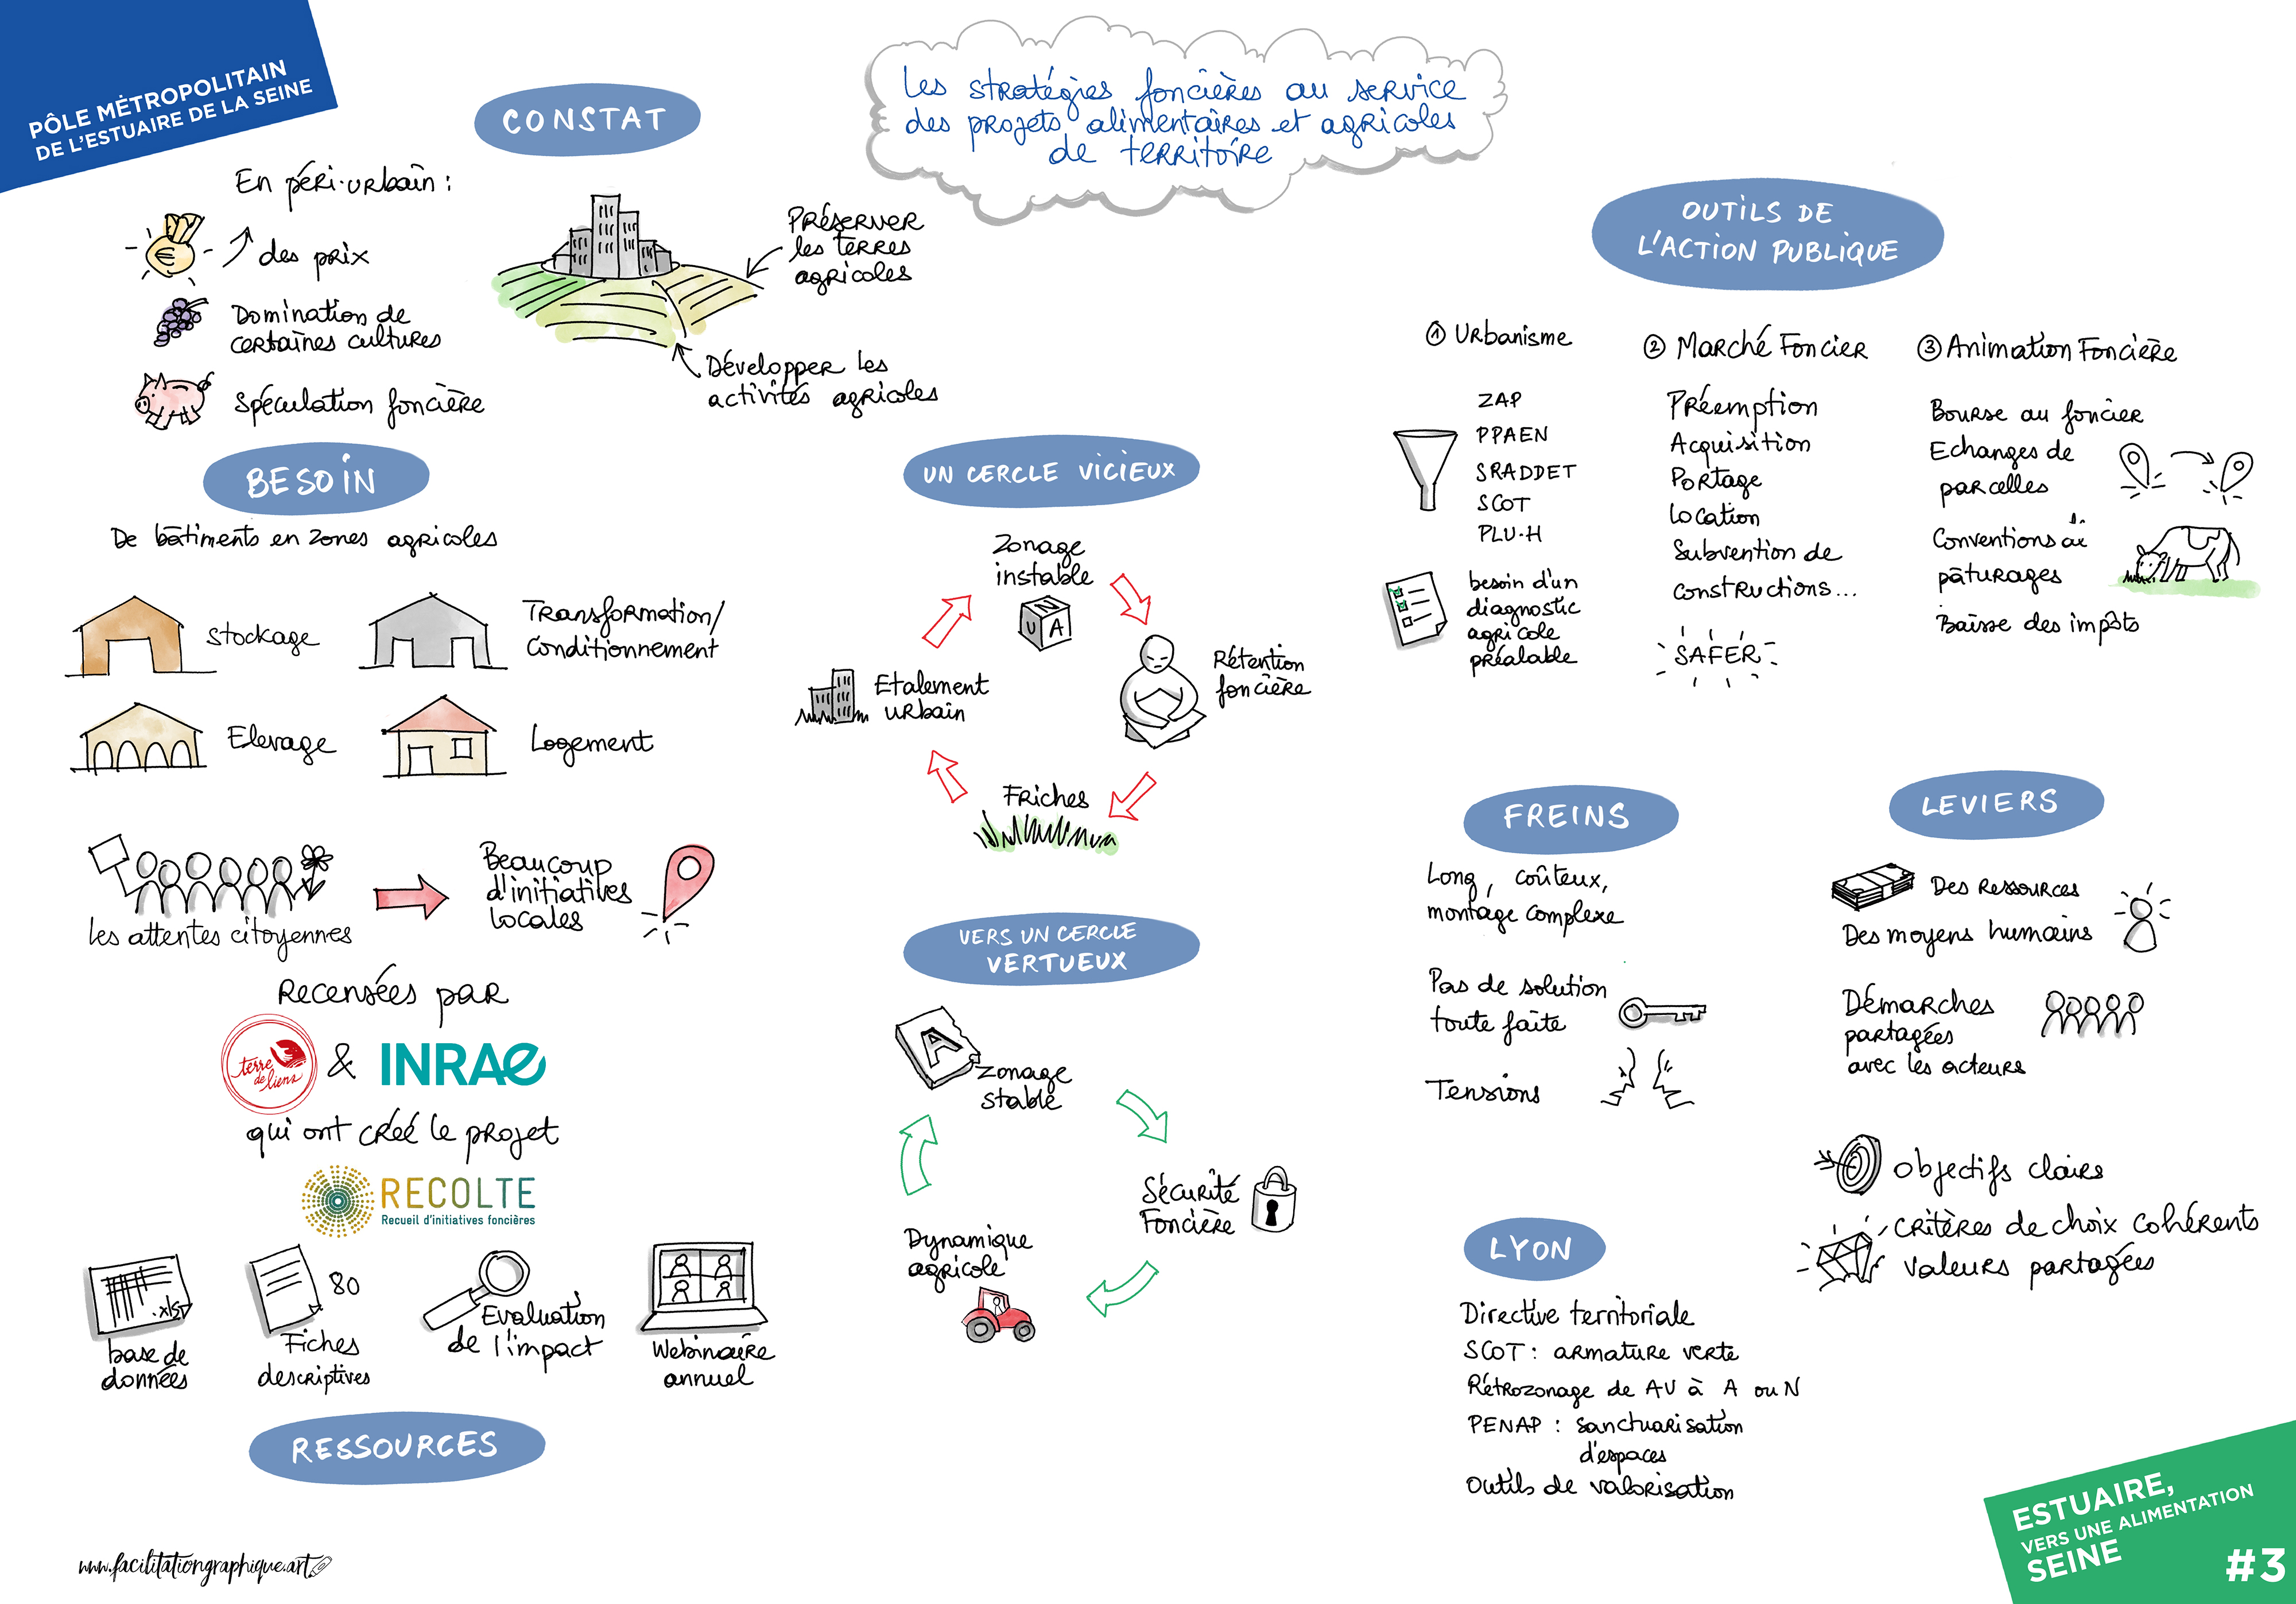 PÔLE MÉTROPOLITAIN
DE L'ESTUAIRE DE LA SEINE
Les stratégies foncières au service
des projets alimentaires et agricoles
de territoire
CONSTAT
En péri-urbain :
des prix
Domination de
certaines cultures
Spéculation foncière
Préserver
les terres
agricoles
Développer les
activités agricoles
BESOIN
De bâtiments en zones agricoles
Stockage
Transformation/
Conditionnement
Elevage
Logement
les attentes citoyennes
Beaucoup
d'initiatives
locales
Recensées par
terre
de liens
&
INRAE
qui ont créé le projet
RECOLTE
Recueil d'initiatives foncières
.xls
base de
données
80
Fiches
descriptives
Evaluation
de l'impact
Webinaire
annuel
RESSOURCES
www.facilitationgraphique.art
UN CERCLE VICIEUX
Zonage
instable
N
U A
Rétention
foncière
Friches
Etalement
urbain
VERS UN CERCLE
VERTUEUX
A
Zonage
stable
Sécurité
Foncière
Dynamique
agricole
OUTILS DE
L'ACTION PUBLIQUE
① Urbanisme
ZAP
PPAEN
SRADDET
SCOT
PLU-H
besoin d'un
diagnostic
agricole
préalable
② Marché Foncier
Préemption
Acquisition
Portage
Location
Subvention de
constructions...
SAFER
③ Animation Foncière
Bourse au foncier
Echanges de
parcelles
Conventions de
pâturages
Baisse des impôts
FREINS
Long, coûteux,
montage complexe
Pas de solution
toute faite
Tensions
LEVIERS
Des ressources
Des moyens humains
Démarches
partagées
avec les acteurs
objectifs clairs
critères de choix cohérents
valeurs partagées
LYON
Directive territoriale
SCOT : armature verte
Rétrozonage de AU à A ou N
PENAP : sanctuarisation
d'espaces
Outils de valorisation
ESTUAIRE,
VERS UNE ALIMENTATION
SEINE
#3